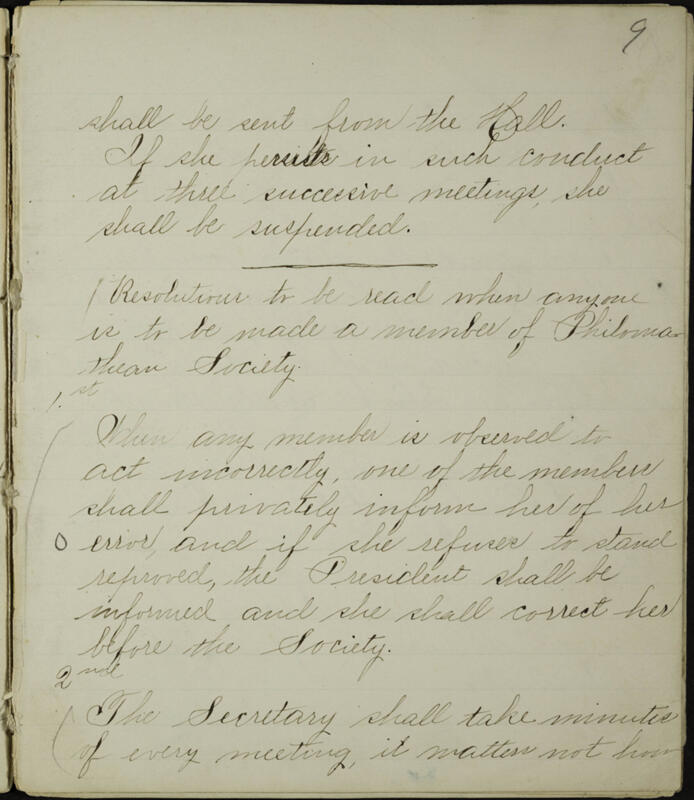 9
shall be sent from the Hall.
If she persists in such conduct
at three successive meetings, she
shall be suspended.
Resolutions to be read when anyone
is to be made a member of Philoma-
thean Society.
1.st
When any member is observed to
act incorrectly, one of the members
shall privately inform her of her
0 error, and if she refuses to stand
reproved, the President shall be
informed and she shall correct her
before the Society.
2nd
The Secretary shall take minutes
of every meeting, it matters not how